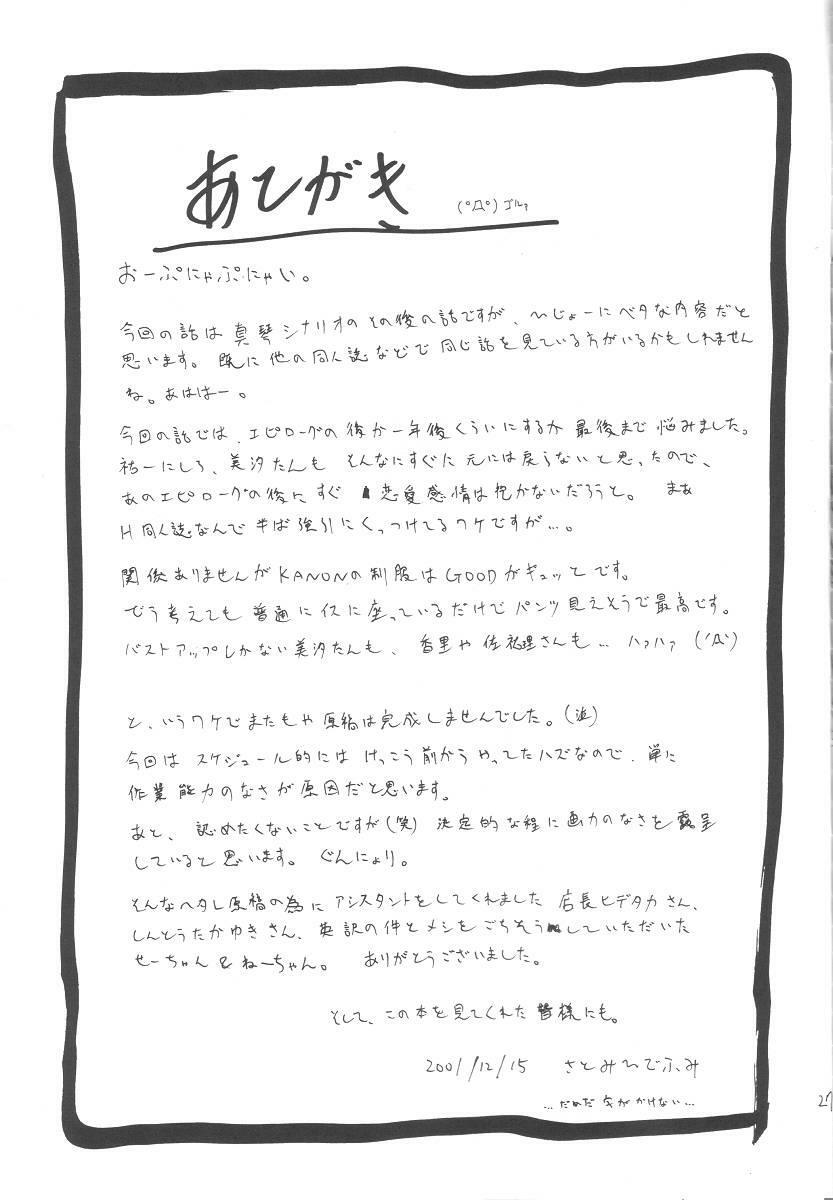 あとがき (゚Д゚)ゴルァ
おーぷにゃぷにゃい。
今回の話は真琴シナリオのその後の話ですが、ひじょーにベタな内容だと
思います。既に他の同人誌などで同じ話を見ている方がいるかもしれません
ね。あははー。
今回の話では、エピローグの後か一年後くらいにするか最後まで悩みました。
祐一にしろ、美汐たんも そんなにすぐに元には戻らないと思ったので、
あのエピローグの後にすぐ 恋愛感情は抱かないだろうと。 まぁ
H同人誌なんで半ば強引にくっつけてるワケですが…。
関係ありませんがKANONの制服はGOODがギュッとです。
どう考えても普通にイスに座っているだけでパンツ見えそうで最高です。
バストアップしかない美汐たんも、香里や佐祐理さんも… ハァハァ (´Д`)
と、いうワケでまたもや原稿は完成しませんでした。(泣)
今回はスケジュール的にはけっこう前からやってたハズなので、単に
作業能力のなさが原因だと思います。
あと、認めたくないことですが(笑) 決定的な程に画力のなさを露呈
していると思います。ぐんにょり。
そんなヘタレ原稿の為にアシスタントをしてくれました 店長ヒデタカさん、
しんとうたかゆきさん、英訳の件とメシをごちそうしていただいた
せーちゃん&ねーちゃん。 ありがとうございました。
そして、この本を見てくれた皆様にも。
2001/12/15 さとみひでふみ
…だめだ 字が かけない…
27